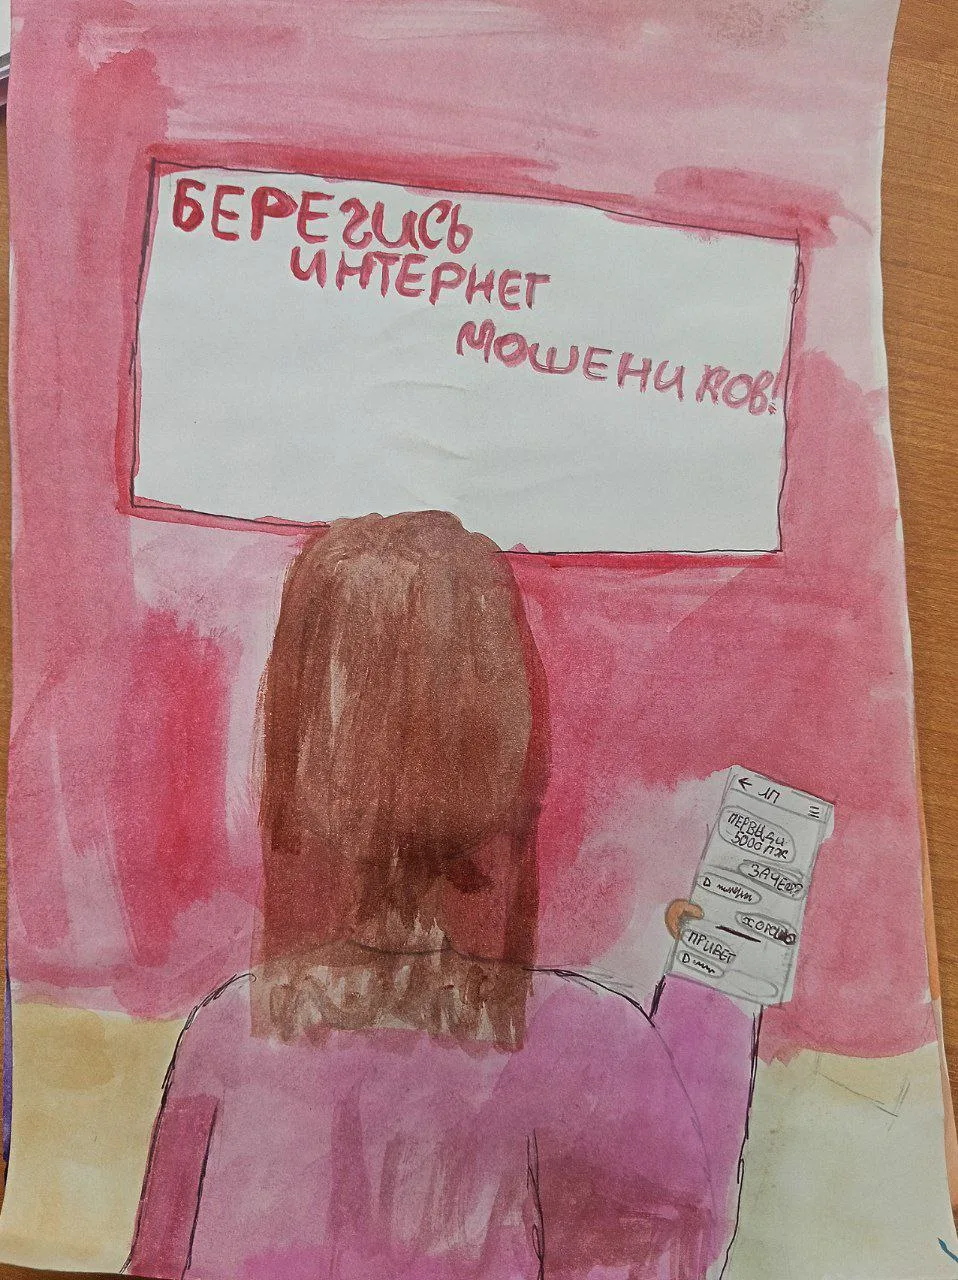 БЕРЕГИСЬ
ИНТЕРНЕТ
МОШЕНИКОВ!
ЛП
ПЕРВИДИ
5000 ПЖ
ЗАЧЕМ?
ХОРОШО
ПРИВЕТ